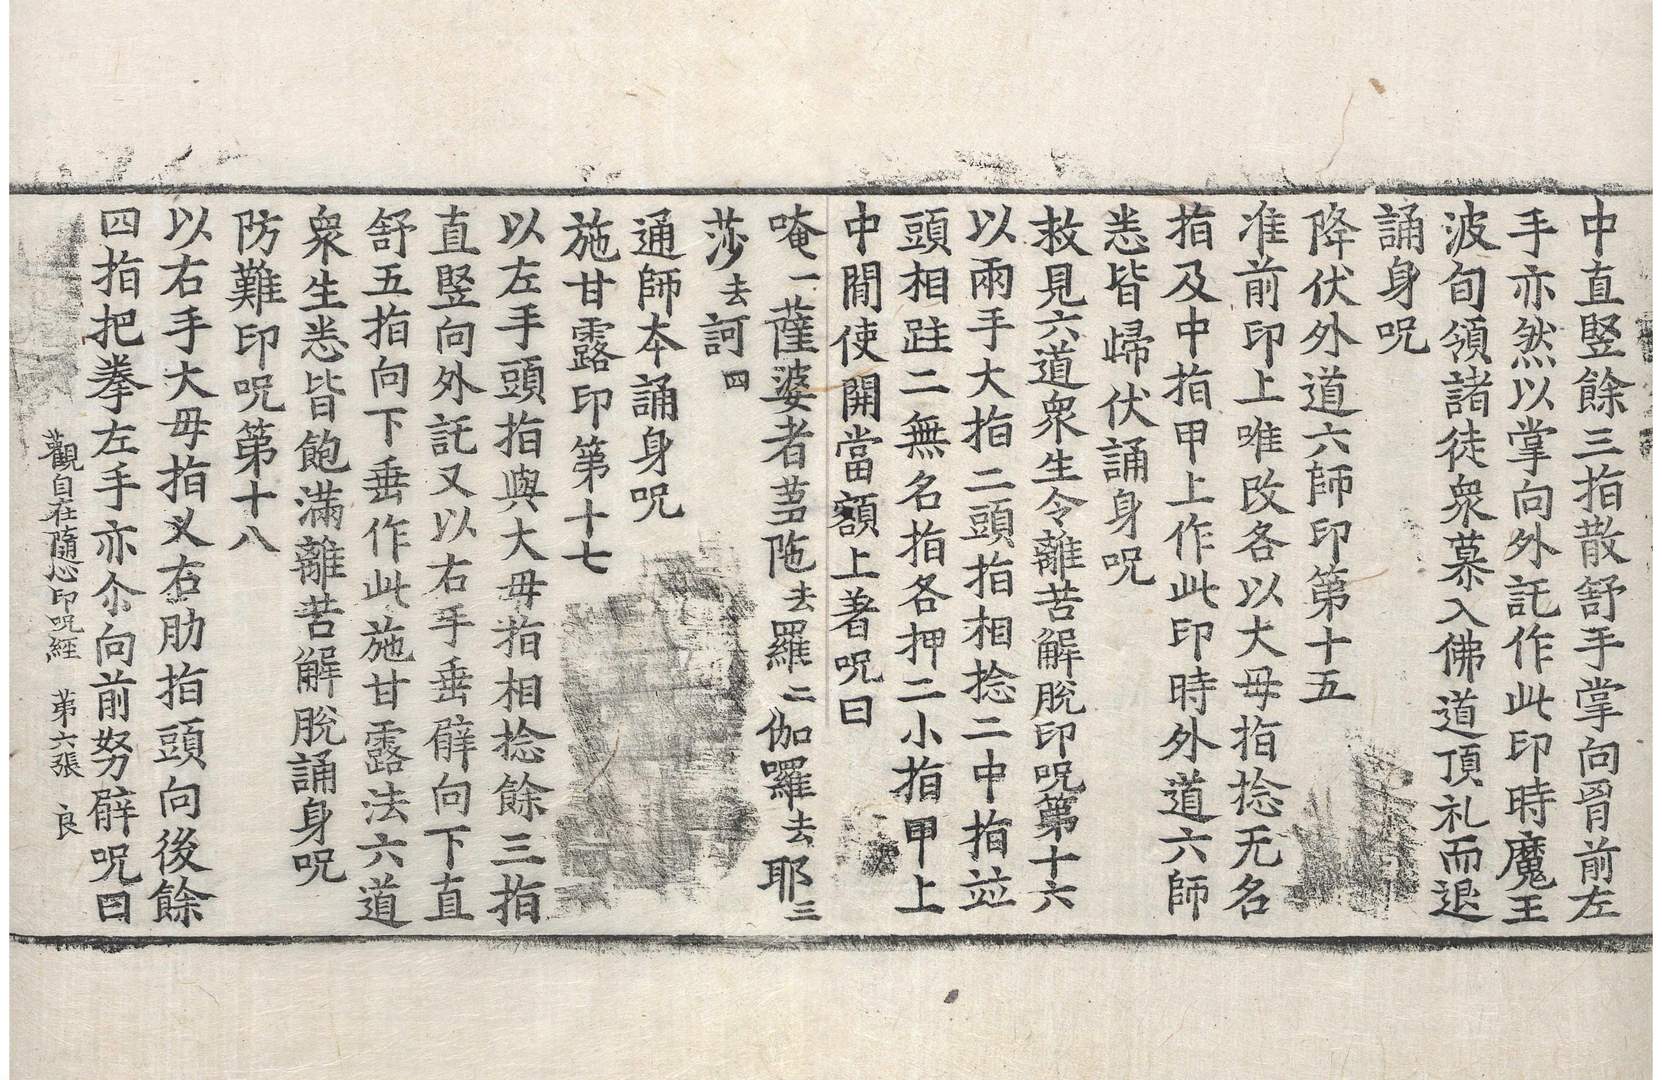 中直竪餘三指散舒手掌向𦙄前左
手亦然以掌向外託作此印時魔王
波旬領諸徒衆慕入佛道頂礼而退
誦身呪
降伏外道六師印第十五
准前印上唯改各以大母指捻无名
指及中指甲上作此印時外道六師
悉皆歸伏誦身呪
救見六道衆生令離苦解脫印呪第十六
以兩手大指二頭指相捻二中指竝
頭相跓二無名指各押二小指甲上
中間使開當額上著呪曰
唵一薩婆者䓟陁去羅二伽囉去耶三
莎去訶四
通師本誦身呪
施甘露印第十七
以左手頭指與大母指相捻餘三指
直竪向外託又以右手垂臂向下直
舒五指向下垂作此施甘露法六道
衆生悉皆飽滿離苦解脫誦身呪
防難印呪第十八
以右手大母指乂右肋指頭向後餘
四指把拳左手亦尒向前努臂呪曰
觀自在隨心印呪經 第六張 良